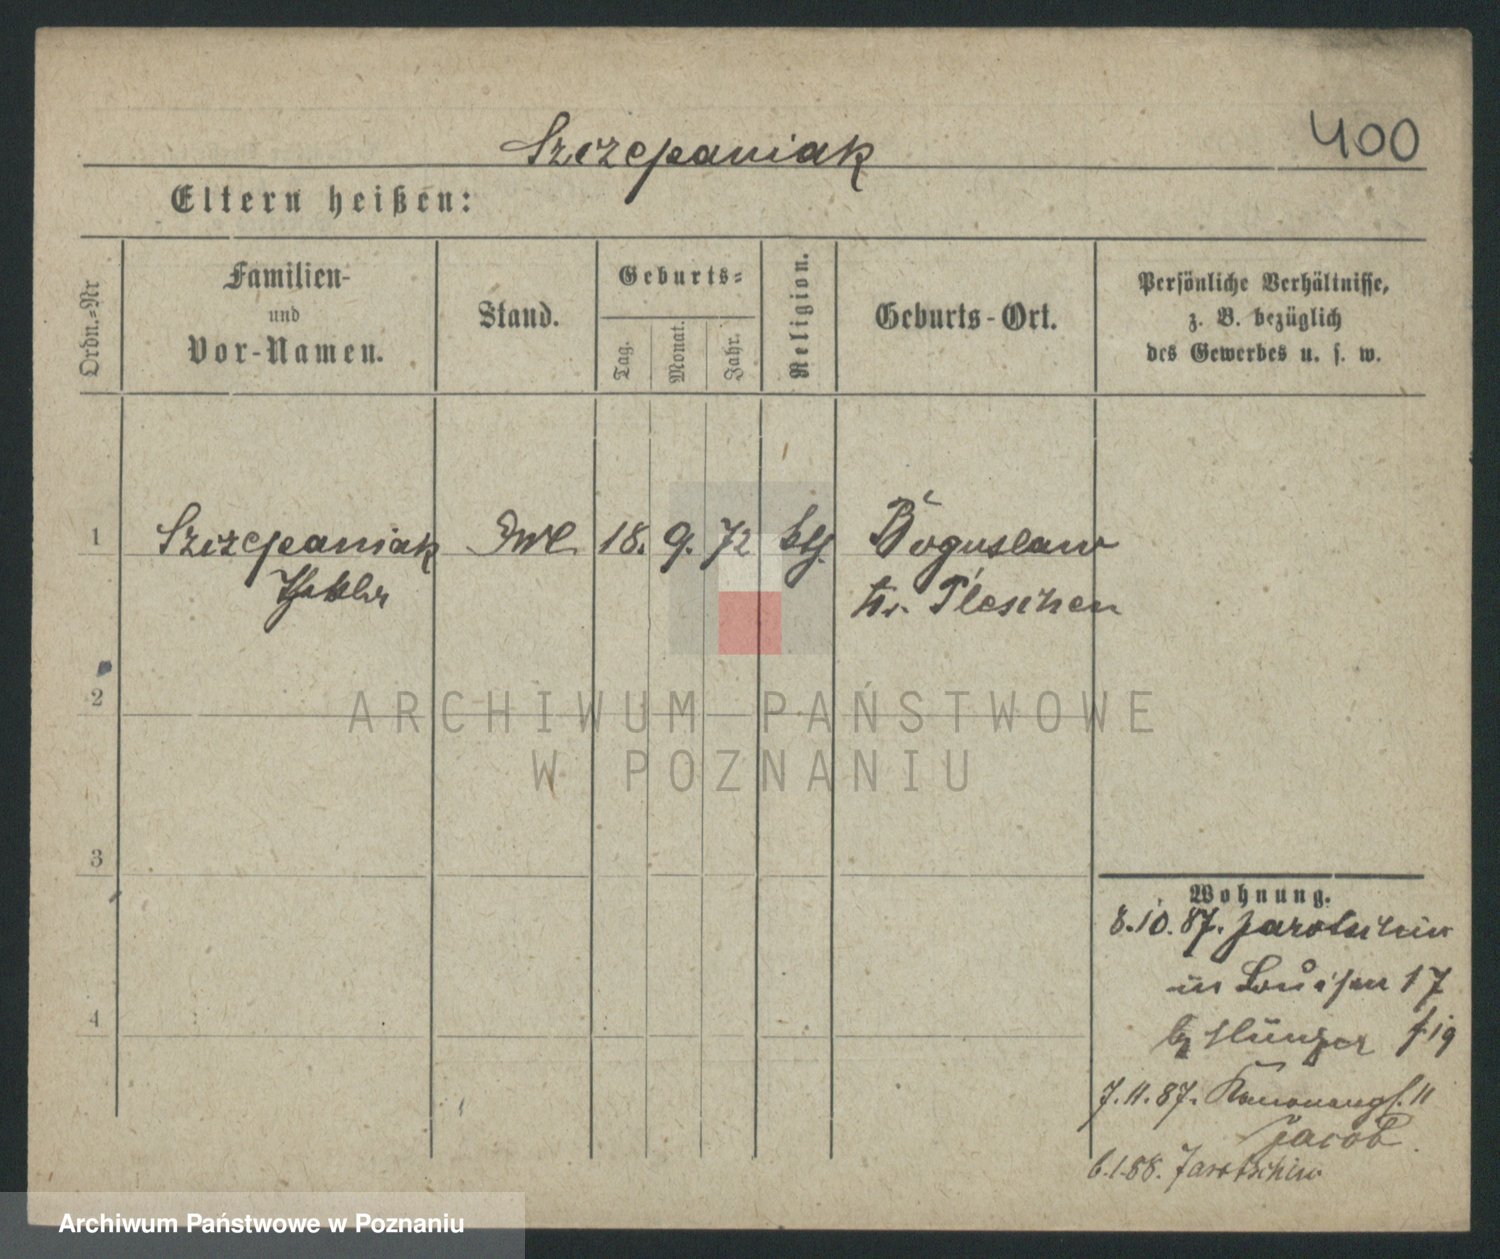 Szczepaniak
400
Eltern heißen:
Ordn.=Nr
Familien-
und
Vor-Namen.
Stand.
Geburts=
Tag.
Monat.
Jahr.
Religion.
Geburts-Ort.
Persönliche Verhältnisse,
z. B. bezüglich
des Gewerbes u. s. w.
1
Szczepaniak
18. 9. 72
Boguslaw
Kr. Pleschen
2
ARCHIWUM PAŃSTWOWE
W POZNANIU
3
Wohnung.
8.10.87. Jarotschin
in Louisen 17
4
7.11.87. Kanonengs. 11
Jacob
6.1.88. Jarotschin
Archiwum Państwowe w Poznaniu